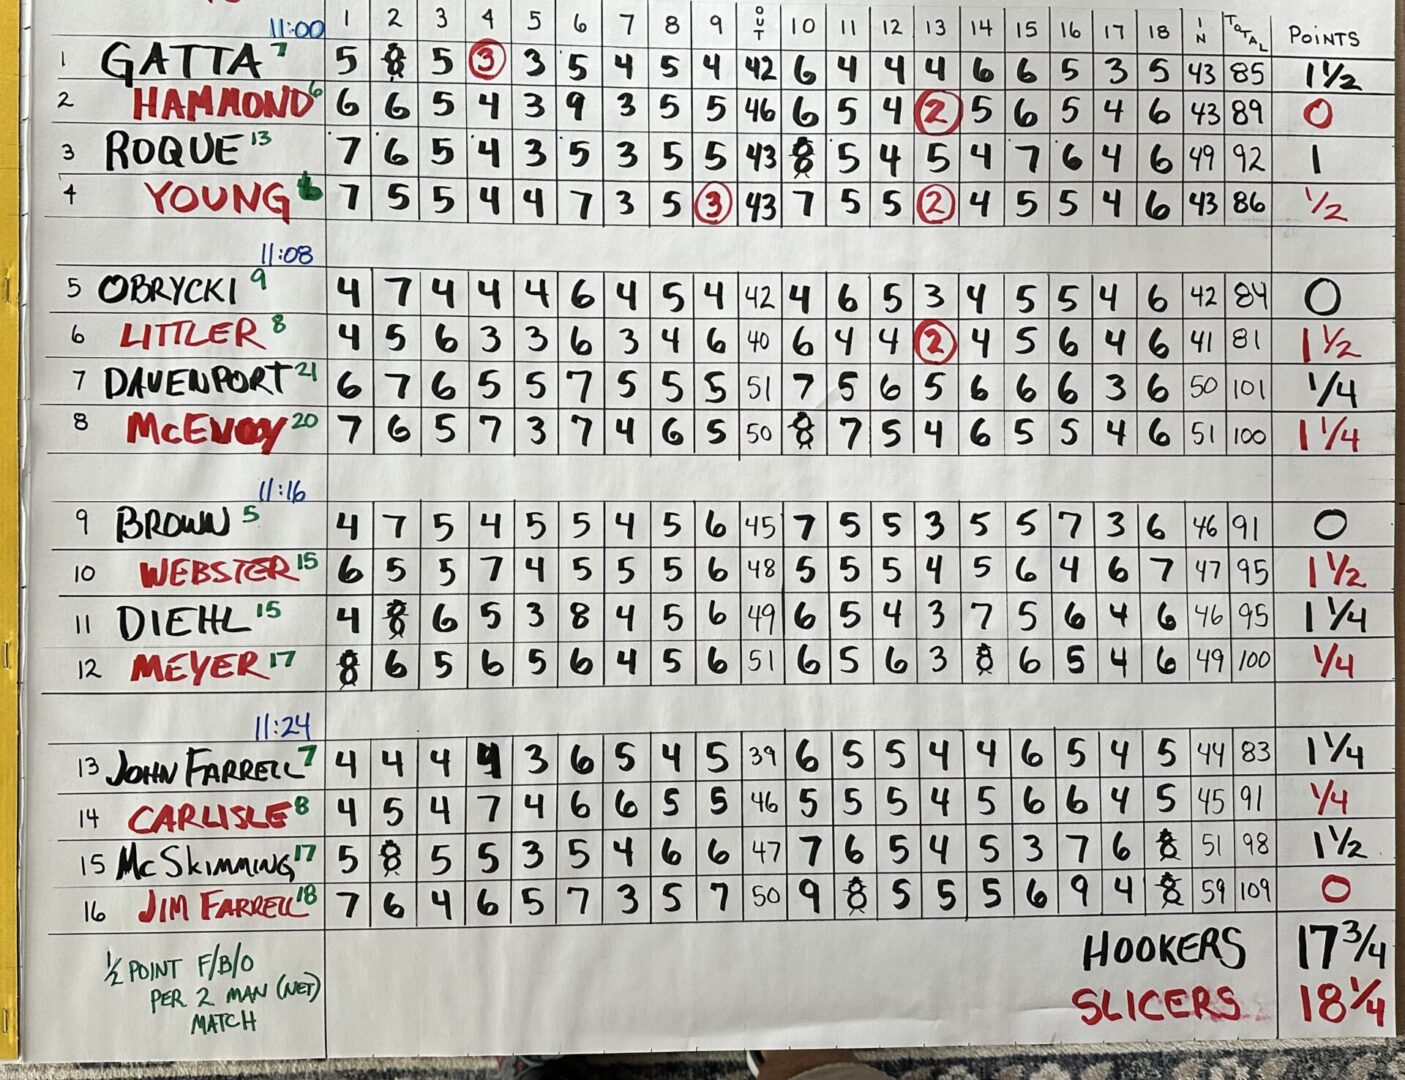 1 2 3 4 5 6 7 8 9 OUT 10 11 12 13 14 15 16 17 18 IN TOTAL POINTS
11:00
1 GATTA 7 5 8 5 3 3 5 4 5 4 42 6 4 4 4 6 6 5 3 5 43 85 1 1/2
2 HAMMOND 6 6 6 5 4 3 9 3 5 5 46 6 5 4 2 5 6 5 4 6 43 89 0
3 ROQUE 13 7 6 5 4 3 5 3 5 5 43 8 5 4 5 4 7 6 4 6 49 92 1
4 YOUNG 6 7 5 5 4 4 7 3 5 3 43 7 5 5 2 4 5 5 4 6 43 86 1/2
11:08
5 OBRYCKI 9 4 7 4 4 4 6 4 5 4 42 4 6 5 3 4 5 5 4 6 42 84 0
6 LITTLER 8 4 5 6 3 3 6 3 4 6 40 6 4 4 2 4 5 6 4 6 41 81 1 1/2
7 DAVENPORT 21 6 7 6 5 5 7 5 5 5 51 7 5 6 5 6 6 6 3 6 50 101 1/4
8 McEVOY 20 7 6 5 7 3 7 4 6 5 50 8 7 5 4 6 5 5 4 6 51 100 1 1/4
11:16
9 BROWN 5 4 7 5 4 5 5 4 5 6 45 7 5 5 3 5 5 7 3 6 46 91 0
10 WEBSTER 15 6 5 5 7 4 5 5 5 6 48 5 5 5 4 5 6 4 6 7 47 95 1 1/2
11 DIEHL 15 4 8 6 5 3 8 4 5 6 49 6 5 4 3 7 5 6 4 6 46 95 1 1/4
12 MEYER 17 8 6 5 6 5 6 4 5 6 51 6 5 6 3 8 6 5 4 6 49 100 1/4
11:24
13 JOHN FARRELL 7 4 4 4 4 3 6 5 4 5 39 6 5 5 4 4 6 5 4 5 44 83 1 1/4
14 CARLISLE 8 4 5 4 7 4 6 6 5 5 46 5 5 5 4 5 6 6 4 5 45 91 1/4
15 McSKIMMING 17 5 8 5 5 3 5 4 6 6 47 7 6 5 4 5 3 7 6 8 51 98 1 1/2
16 JIM FARRELL 18 7 6 4 6 5 7 3 5 7 50 9 8 5 5 5 6 9 4 8 59 109 0
1/2 POINT F/B/O
PER 2 MAN (NET)
MATCH
HOOKERS 17 3/4
SLICERS 18 1/4